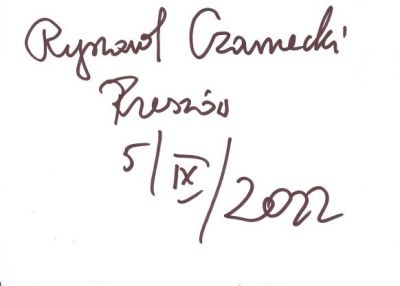 Ryszard Czarnecki
Rzeszów
5/IX/2022